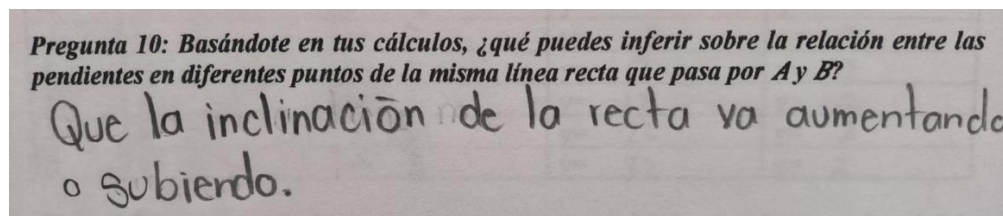 Pregunta 10: Basándote en tus cálculos, ¿qué puedes inferir sobre la relación entre las
pendientes en diferentes puntos de la misma línea recta que pasa por A y B?
Que la inclinación de la recta va aumentando
o subiendo.